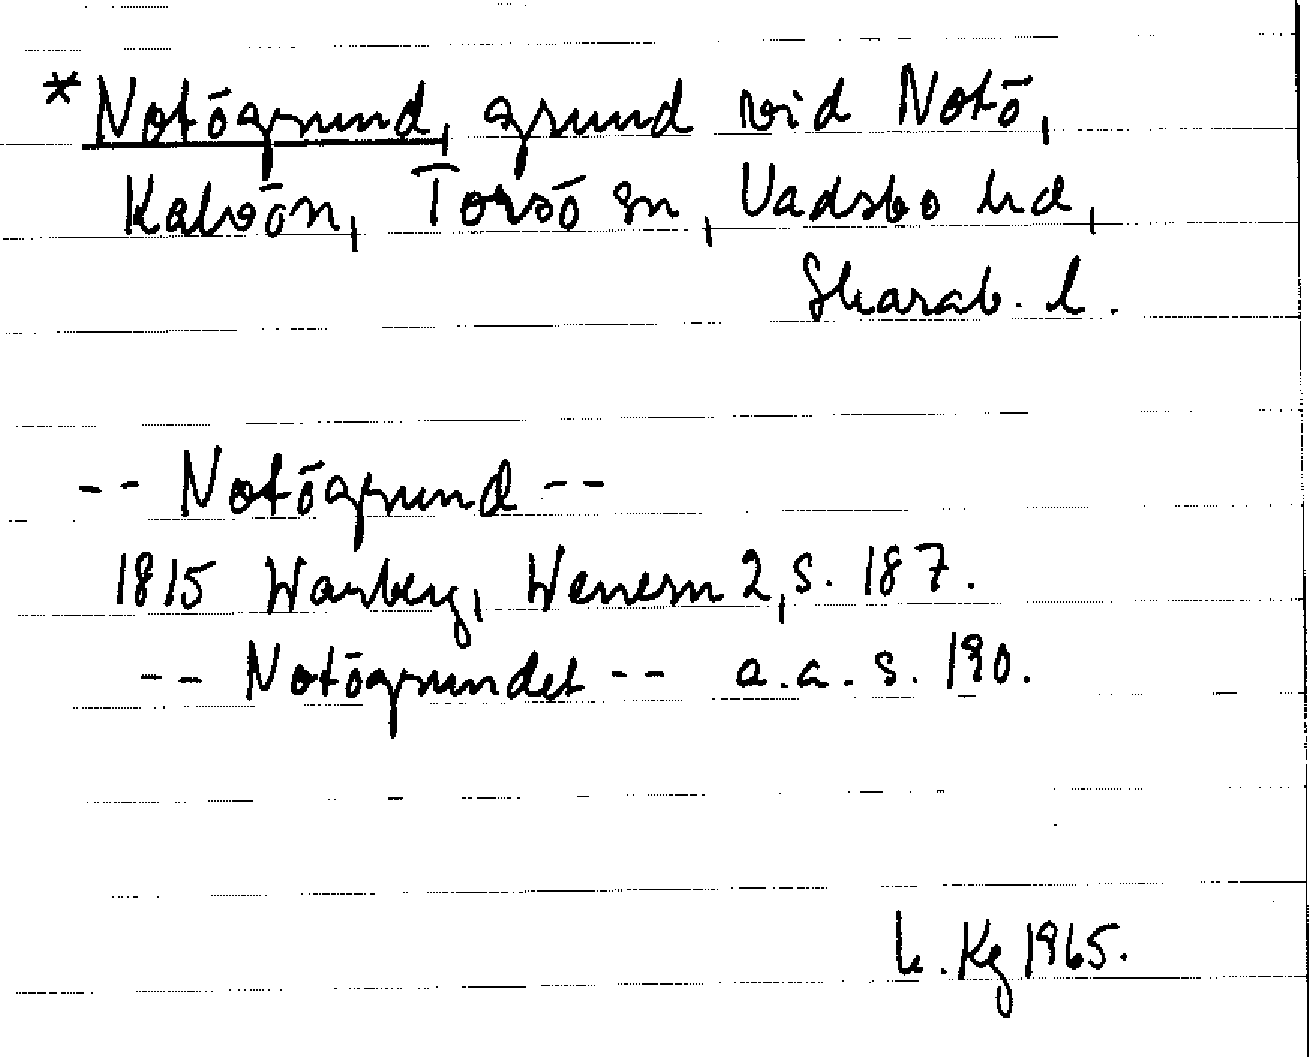 *Notögrund, grund vid Notö,
Kalvön, Torsö sn, Vadsbo hd,
Skarab. l.
-- Notögrund --
1815 Warberg, Wenern 2, s. 187.
-- Notögrundet -- a.a. s. 190.
Kg 1965.